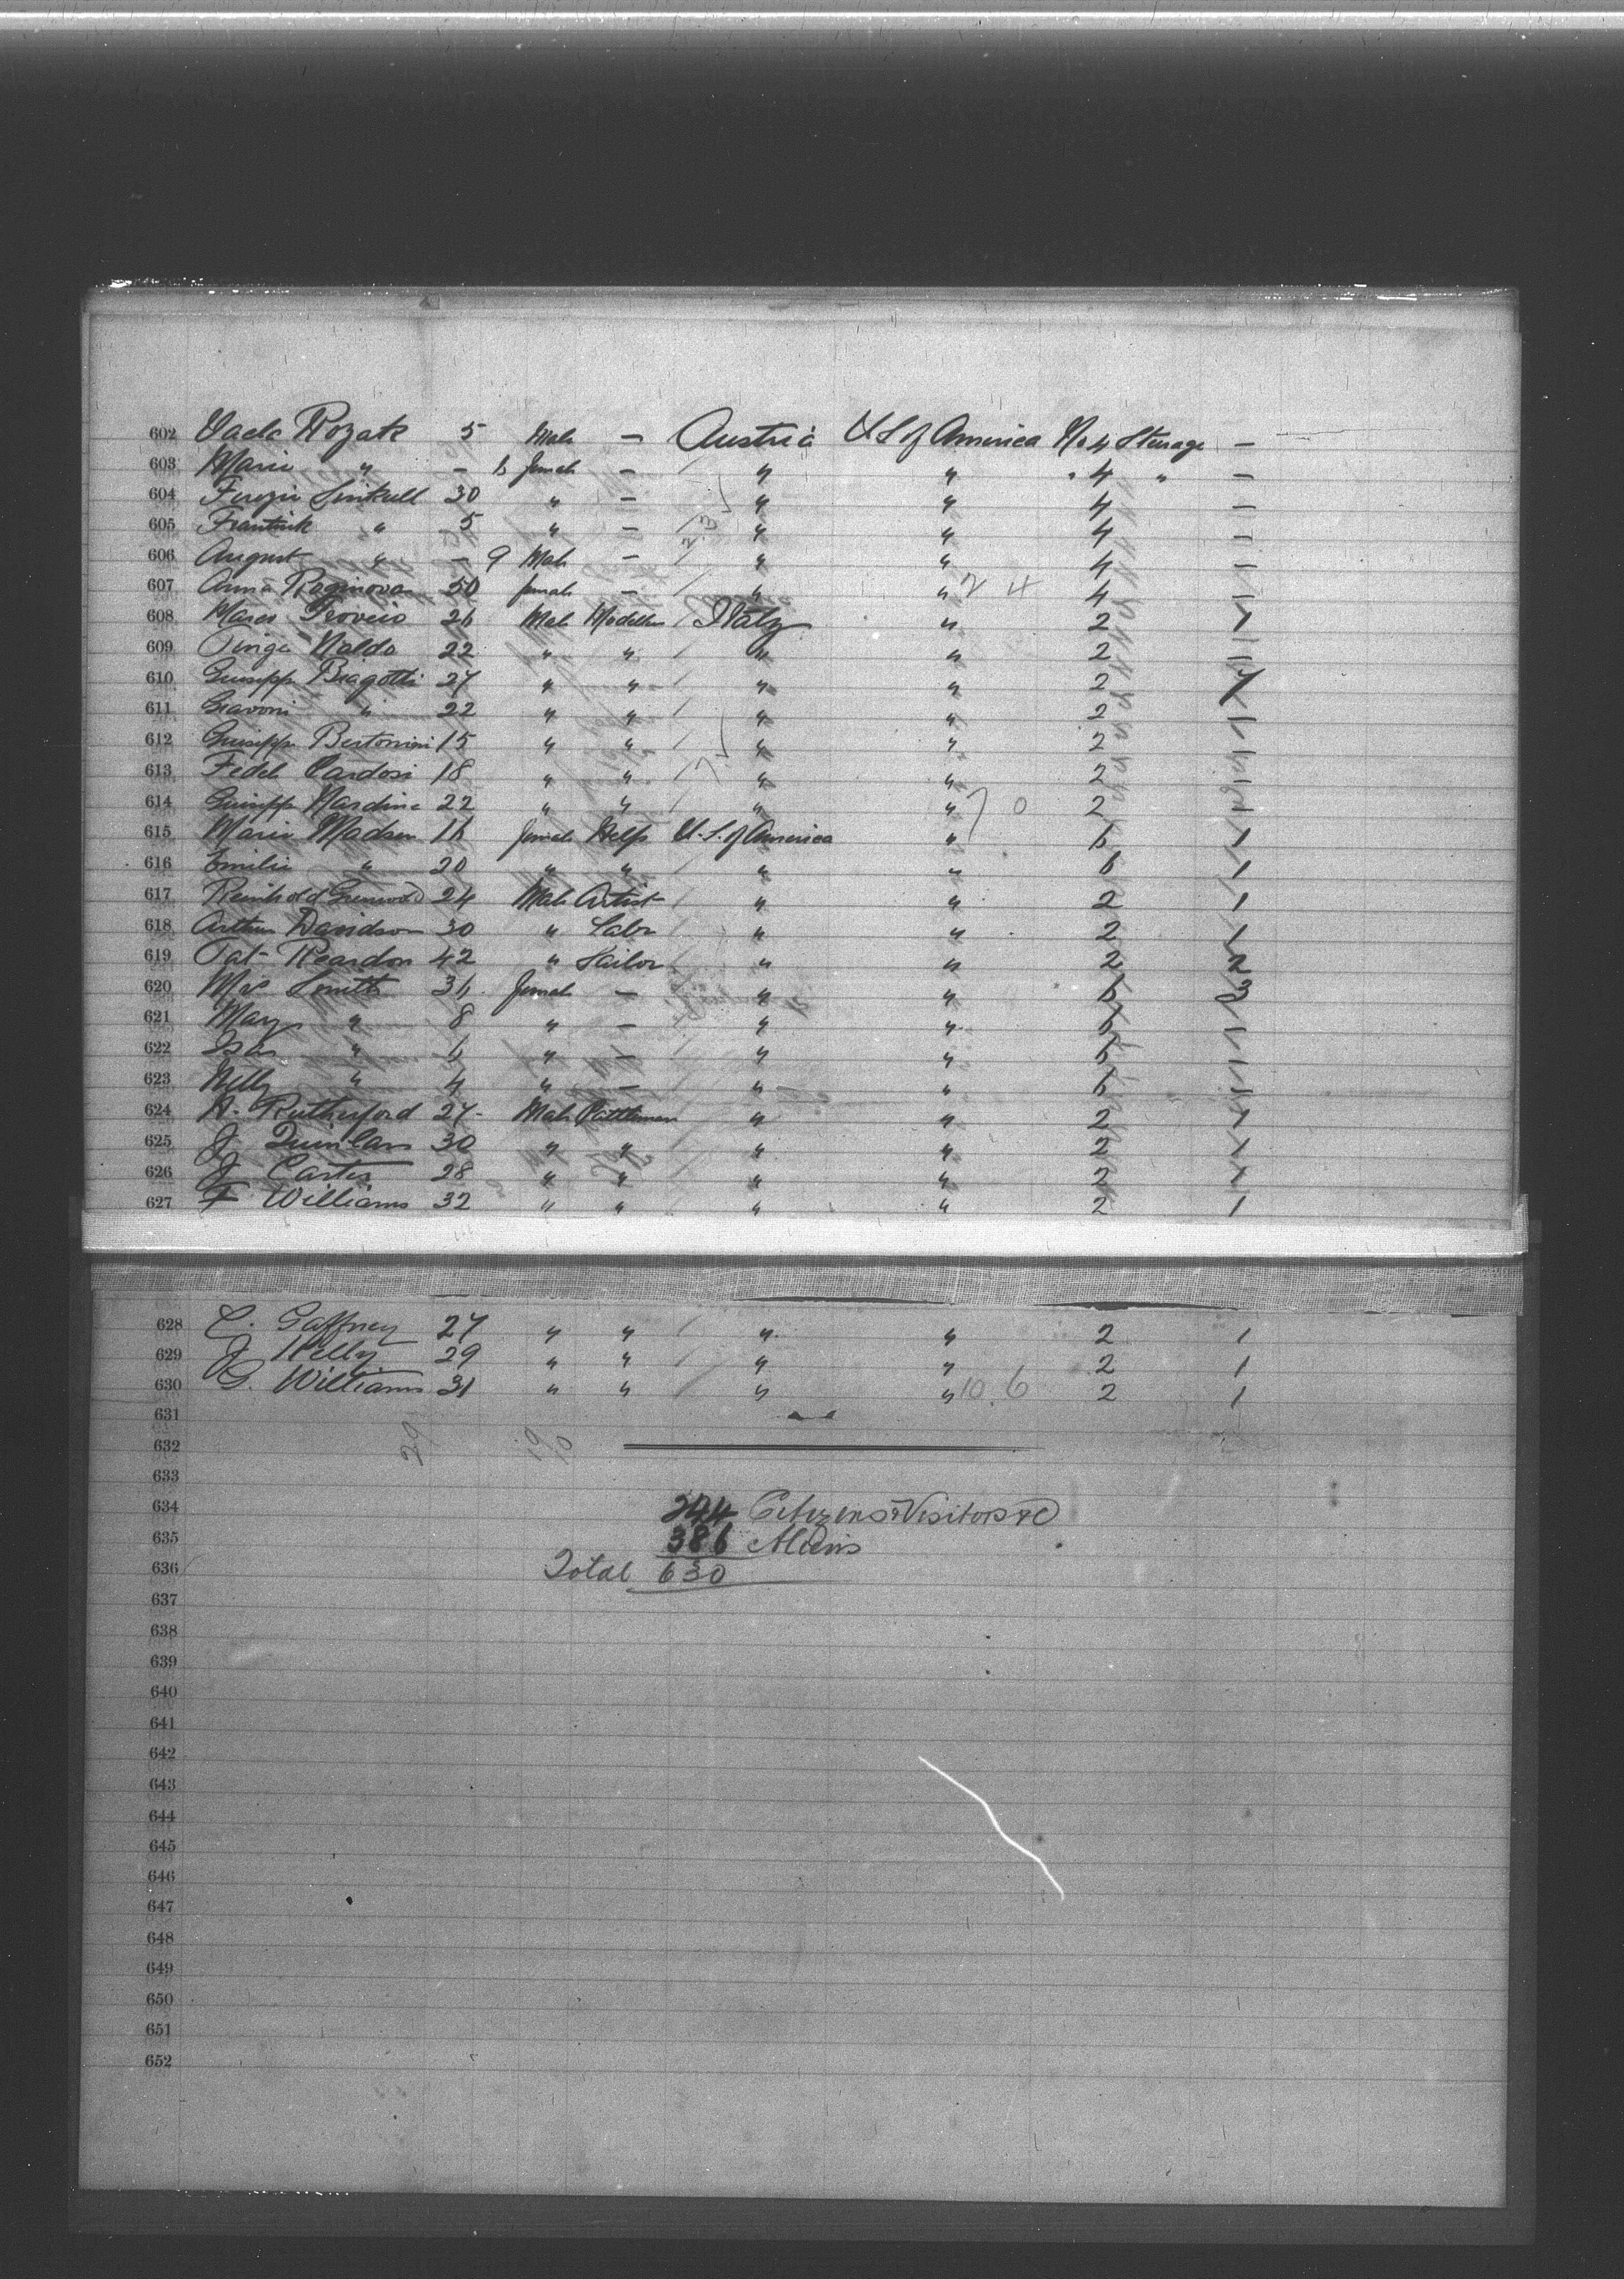 602 Rozak 5 Male — Austria U S of America No 4 Sterage —
603 Marie " — 6 female — " " " 4 " —
604 30 " — " " 4 —
605 " 5 " — " " 4 —
606 August " — 9 Male — " " 4 —
607 Anna 50 female — " " 2 4 4 —
608 26 Male Modeller Italy " 2 1
609 Naldo 22 " " " " 2 1
610 Guisepp Biagotti 27 " " " " 2 1
611 Giavoni " 22 " " " " 2 1
612 Guisepp Bertonini 15 " " " " 2 1
613 Fedele Cardosi 18 " " " " 2 1
614 Guisepp Nardine 22 " " " " 7 0 2 1
615 Marie Madsen 16 female Help U.S. of America " 6 1
616 Emilie " 20 " " " " 6 1
617 Reinhold 24 Male Artist " " 2 1
618 Arthur Davidson 30 " Labr " " 2 1
619 Pat Reardon 42 " Sailor " " 2 2
620 Mrs Smith 36 female — " " 6 3
621 Mary " 8 " — " " 6 —
622 " 6 " — " " 6 —
623 Nelly " 4 " — " " 6 —
624 A. Rutherford 27 Male Cattleman " " 2 1
625 J Quinlan 30 " " " " 2 1
626 J Carter 28 " " " " 2 1
627 F Williams 32 " " " " 2 1
628 C. Gaffney 27 " " " " 2 1
629 J Kelly 29 " " " " 2 1
630 G. Williams 31 " " " " 10 6 2 1
631
632 29
633
634 244 Citizens & Visitors &c
635 386 Aliens
636 Total 630
637
638
639
640
641
642
643
644
645
646
647
648
649
650
651
652